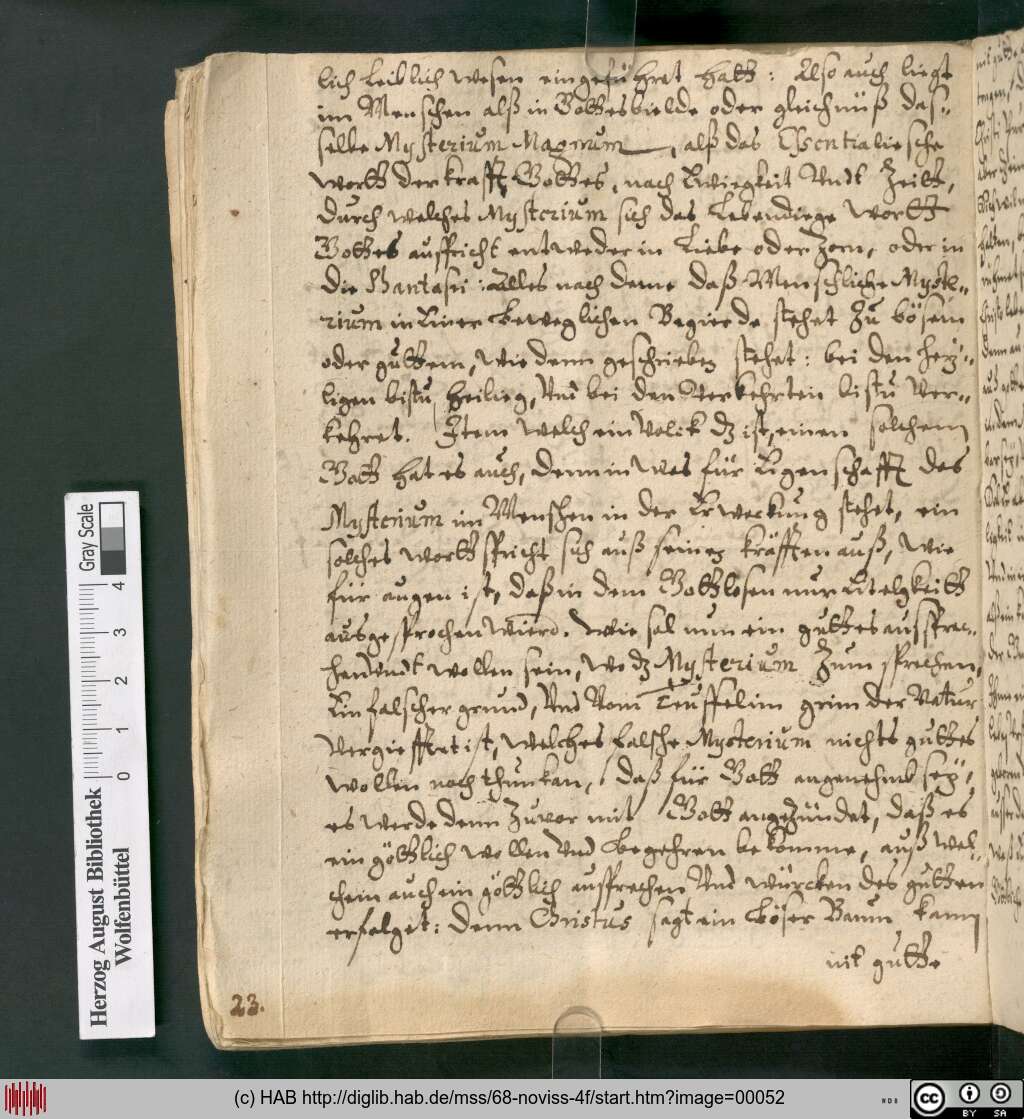 lich Leiblich wesen eingeführet hatt: Also auch liegt
im Menschen alß in Gottes bielde oder gleichnüß das-
selbe Mysterium Magnum, alß das Essentialische
wortt der krafft Gottes, nach Ewiegkeit Undt Zeitt,
durch welches Mysterium sich das Lebendiege wortt
Gottes ausspricht entweder in Liebe oder Zorn, oder in
die Fantasii: Alles nach deme daß Menschliche Myste-
rium in Einer beweglichen Begierde stehet Zu bösem
oder guttem, wie denn geschrieben stehet: bei den hey-
ligen bistu heilieg, Und bei den Verkehrten bistu Ver-
kehret. Item welch ein Volck dz ist, einen solchenn
Gott hat es auch, denn in was für Eigenschafft das
Mysterium im Menschen in der Erweckung stehet, ein
solches wortt spricht sich auß seinen kräfften auß, wie
für augen ist, daß in dem Gottlosen nur Eitelgkeitt
ausgesprochen wierd. Wie sol nun ein guttes aussprec-
hen Undt wollen sein, wo dz Mysterium Zum sprechen,
Ein falscher grund, Und Vom Teuffel im grim der Natur
Vergiefftet ist, welches falsche Mysterium nichts guttes
wollen noch thun kan, daß für Gott angenehmb sey,
es werde denn Zuvor mit Gott angezündet, daß es
ein göttlich wollen Und begehren bekomme, auß wel-
chem auch ein göttlich aussprechen Und würcken des gutten
erfolget: denn Christus sagt ein böser Baum kann
nit gutte
23.
Herzog August Bibliothek
Wolfenbüttel
0 1 2 3 4
Gray Scale
(c) HAB http://diglib.hab.de/mss/68-noviss-4f/start.htm?image=00052
cc BY SA